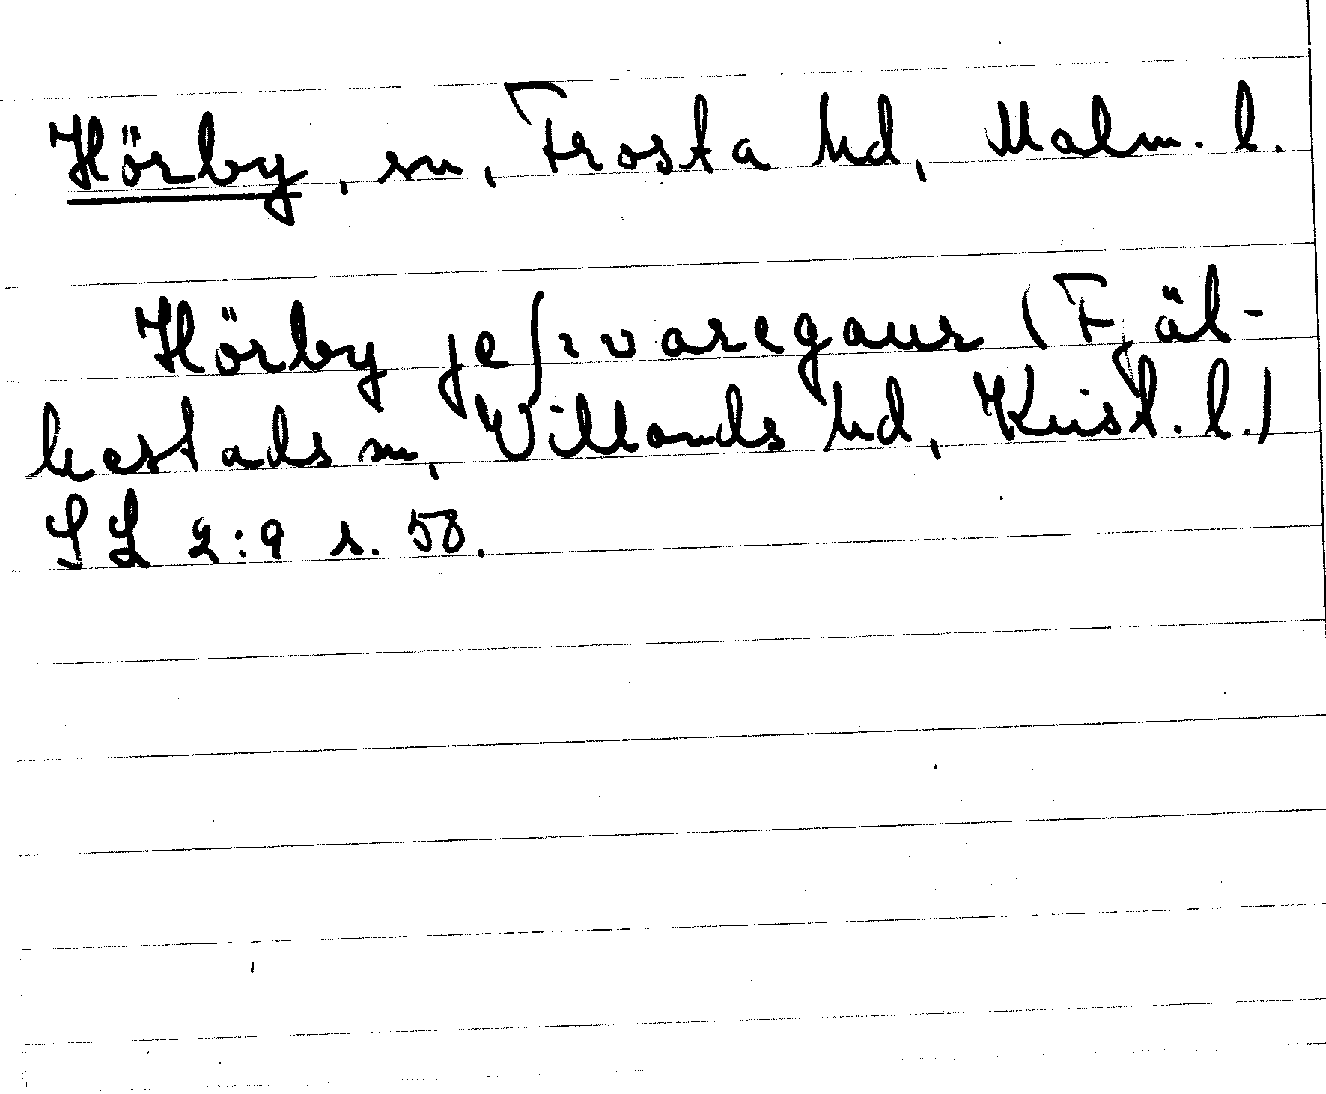 Hörby, sn, Frosta hd, Malm. l.
Hörby je∫ɿvaregaur (Fjäl-
kestads sn, Villands hd, Krist. l.)
SL 2:9 s. 58.